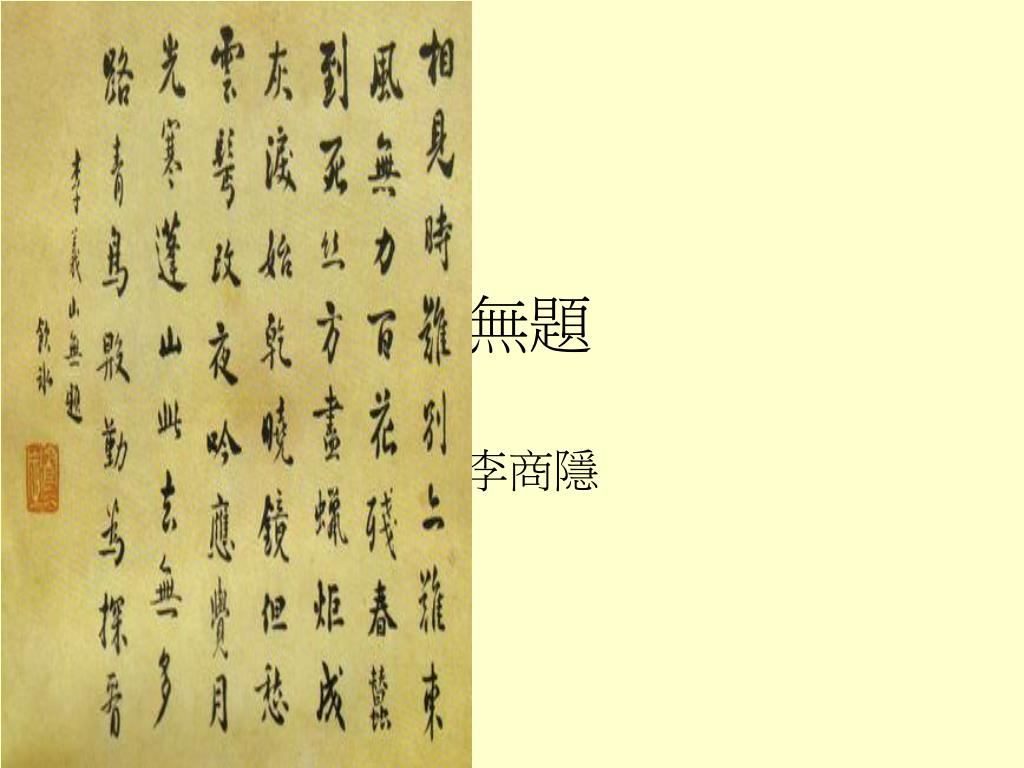 相見時難別亦難東
風無力百花殘春蠶
到死丝方盡蠟炬成
灰淚始乾曉鏡但愁
雲鬢改夜吟應覺月
光寒蓬山此去無多
路青鳥殷勤為探看
李義山無題
無題
李商隱